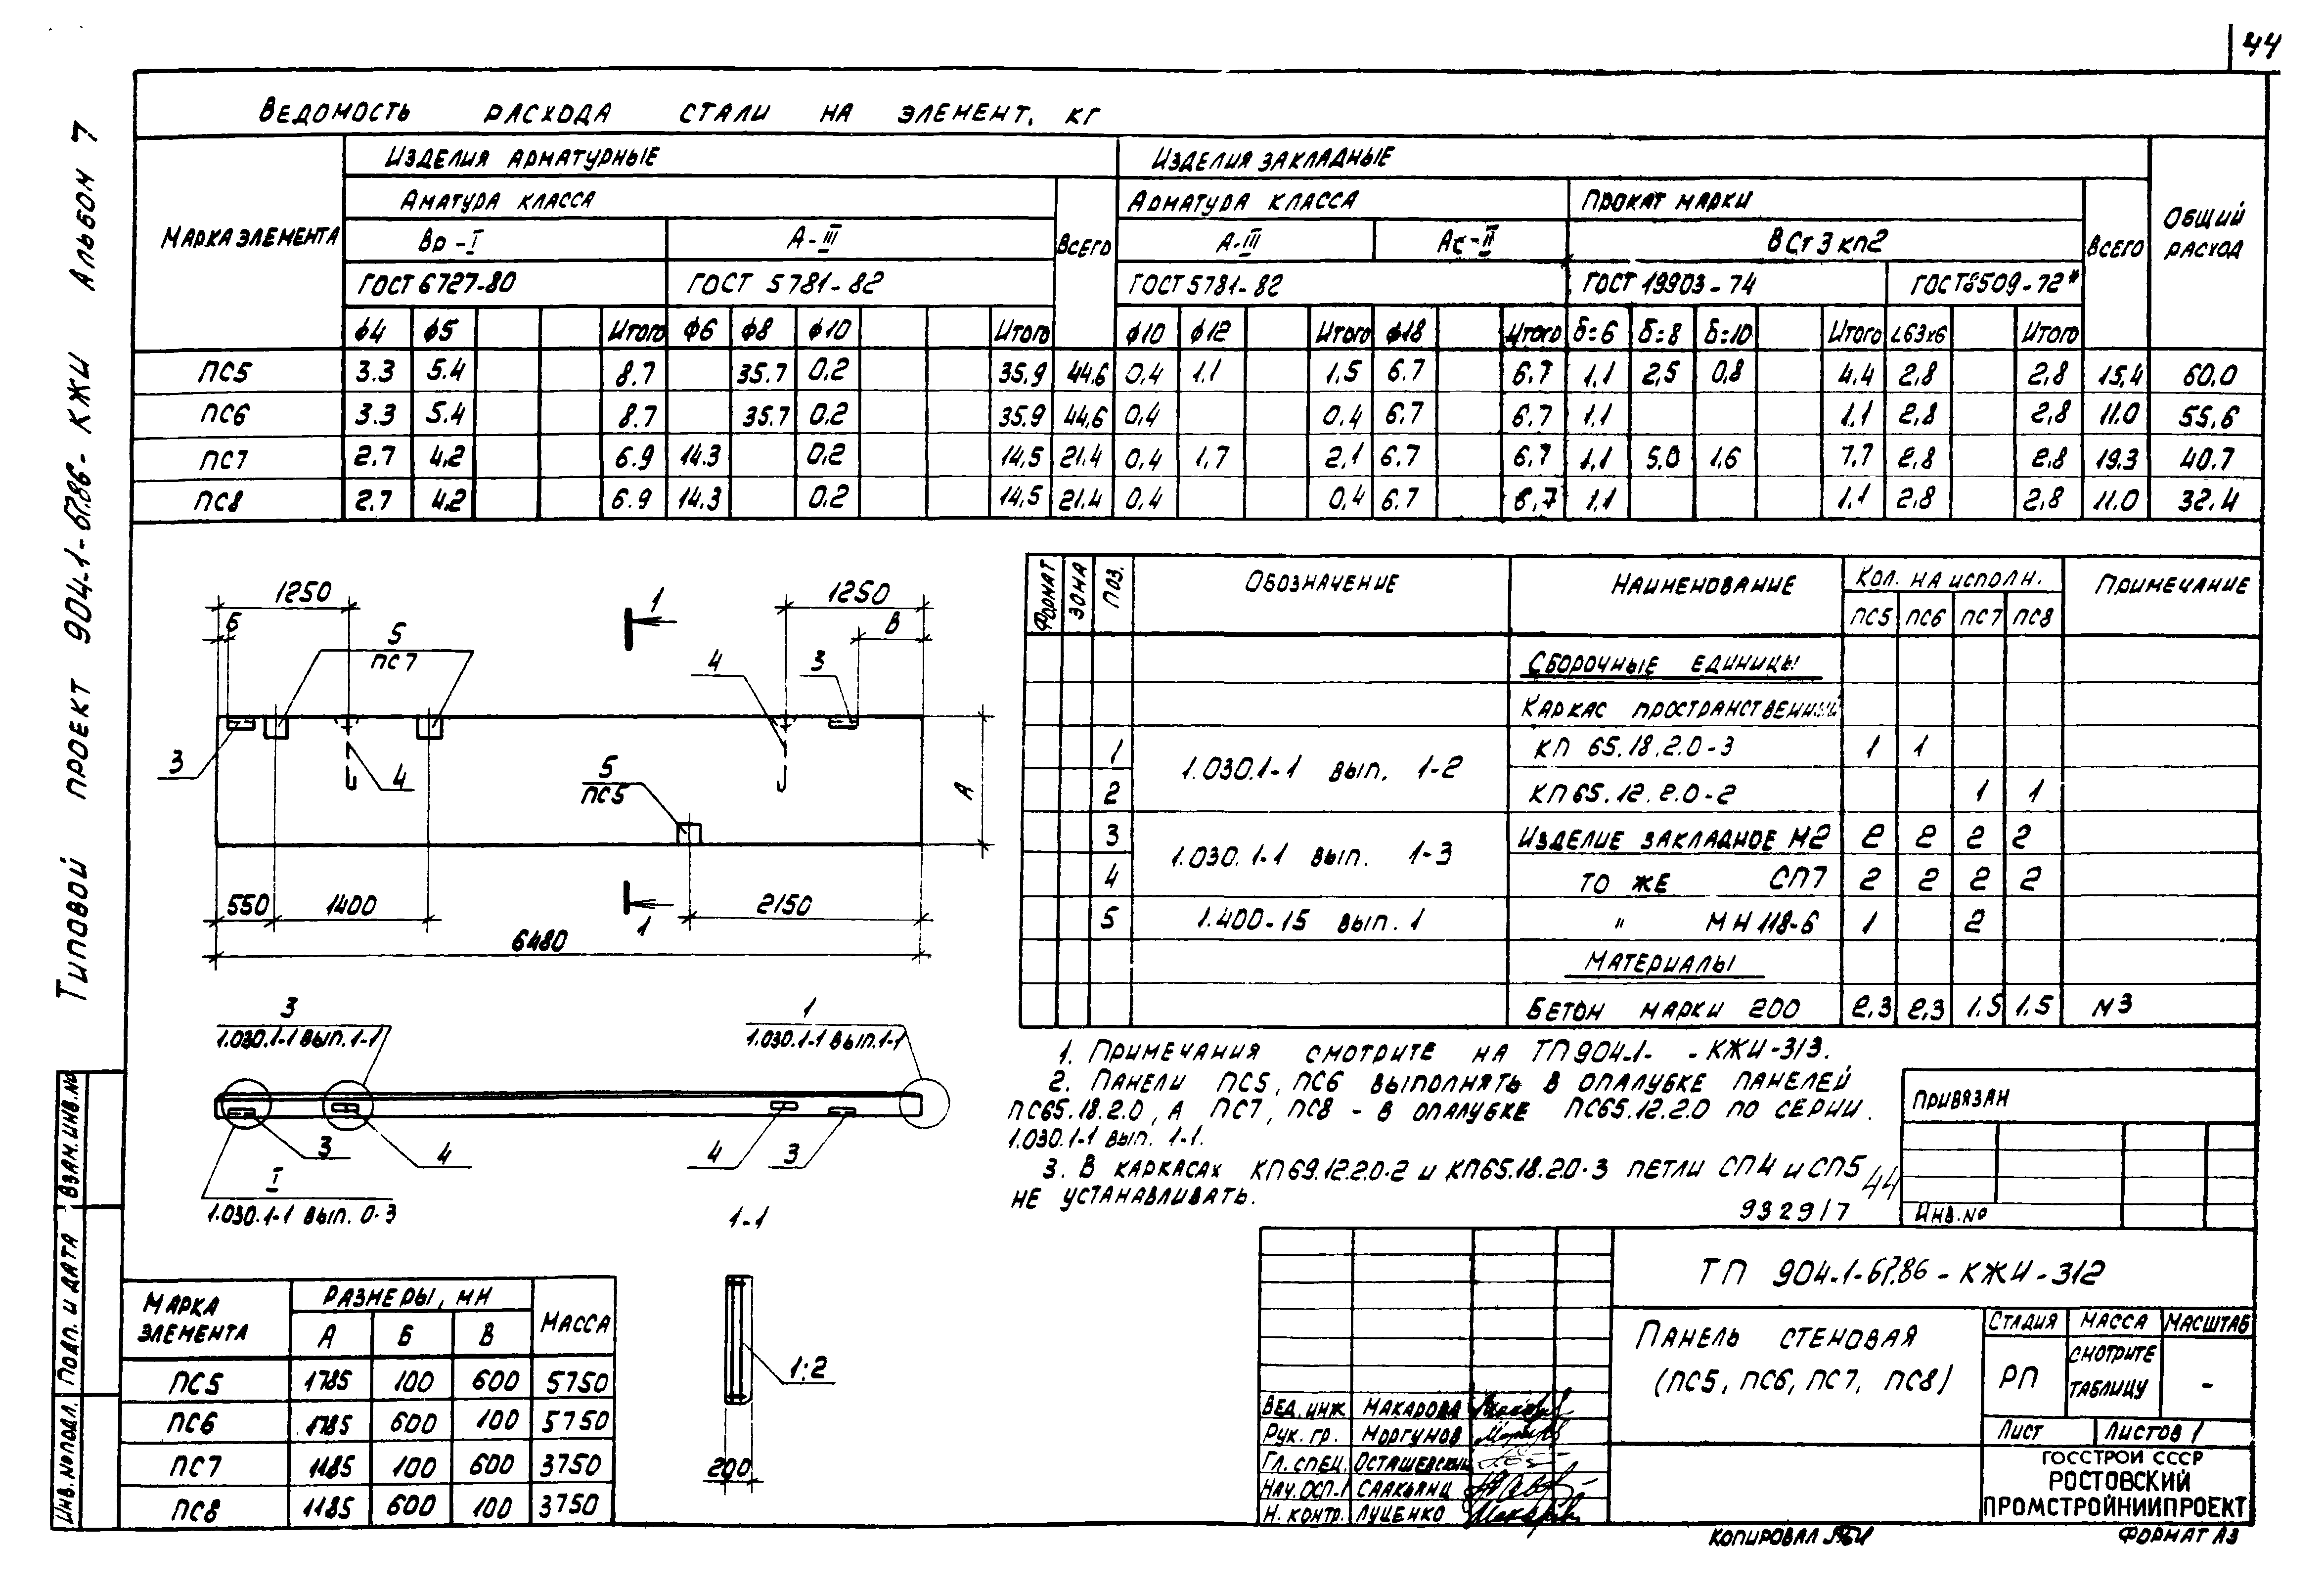 44
Типовой проект 904-1-67.86-КЖИ Альбом 7
Ведомость расхода стали на элемент, кг
Марка элемента
Изделия арматурные
Изделия закладные
Общий расход
Аматура класса
Всего
Арматура класса
Прокат марки
Всего
Вр-I
А-III
А-III
Ас-II
ВСт3кп2
ГОСТ 6727-80
ГОСТ 5781-82
ГОСТ 5781-82
ГОСТ 19903-74
ГОСТ 8509-72*
ф4 ф5 Итого ф6 ф8 ф10 Итого ф10 ф12 Итого ф18 Итого δ=6 δ=8 δ=10 Итого L63х6 Итого
ПС5 3.3 5.4 8.7 35.7 0.2 35.9 44.6 0.4 1.1 1.5 6.7 6.7 1.1 2,5 0.8 4.4 2.8 2.8 15,4 60.0
ПС6 3.3 5.4 8.7 35.7 0.2 35.9 44,6 0.4 0.4 6.7 6.7 1.1 1.1 2,8 2,8 11.0 55.6
ПС7 2.7 4.2 6.9 14.3 0.2 14,5 21.4 0,4 1,7 2,1 6.7 6.7 1,1 5.0 1.6 7,7 2.8 2.8 19.3 40.7
ПС8 2.7 4.2 6.9 14.3 0.2 14,5 21.4 0,4 0,4 6.7 6,7 1.1 1,1 2,8 2,8 11.0 32.4
1250
1250
Б
В
5
ПС7
1
4
3
3
4
5
ПС5
А
550
1400
2150
1
6480
3
1.030.1-1 вып.1-1
1
1.030.1-1 вып.1-1
3
4
4
3
I
1.030.1-1 вып. 0-3
1-1
1:2
200
Формат
Зона
Поз.
Обозначение
Наименование
Кол. на исполн.
Примечание
ПС5 ПС6 ПС7 ПС8
Сборочные единицы
Каркас пространственный
1 1.030.1-1 вып. 1-2 КП 65.18.2.0-3 1 1
2 КП65.12.2.0-2 1 1
3 1.030.1-1 вып. 1-3 Изделие закладное М2 2 2 2 2
4 то же СП7 2 2 2 2
5 1.400-15 вып.1 " МН118-6 1 2
Материалы
Бетон марки 200 2,3 2,3 1.5 1.5 м3
1. Примечания смотрите на ТП904-1- -КЖИ-313.
2. Панели ПС5, ПС6 выполнять в опалубке панелей
ПС65.18.2.0, а ПС7, ПС8 - в опалубке ПС65.12.2.0 по серии
1.030.1-1 вып. 1-1.
3. В каркасах КП69.12.2.0-2 и КП65.18.2.0-3 петли СП4 и СП5
не устанавливать.
44
9329/7
Привязан
Инв.№
Марка элемента
Размеры, мм
Масса
А Б В
ПС5 1785 100 600 5750
ПС6 1785 600 100 5750
ПС7 1185 100 600 3750
ПС8 1185 600 100 3750
Инв.№подл.
Подп. и дата
Взам.инв.№
ТП 904-1-67.86-КЖИ-312
Панель стеновая
(ПС5, ПС6, ПС7, ПС8)
Стадия Масса Масштаб
РП
смотрите таблицу
-
Лист
Листов 1
Вед.инж Макарова
Рук. гр. Моргунов
Гл.спец. Осташевский
Нач.ОСП-1 Саакьянц
Н.контр. Луценко
ГОССТРОЙ СССР
РОСТОВСКИЙ
ПРОМСТРОЙНИИПРОЕКТ
Копировал
Формат А3